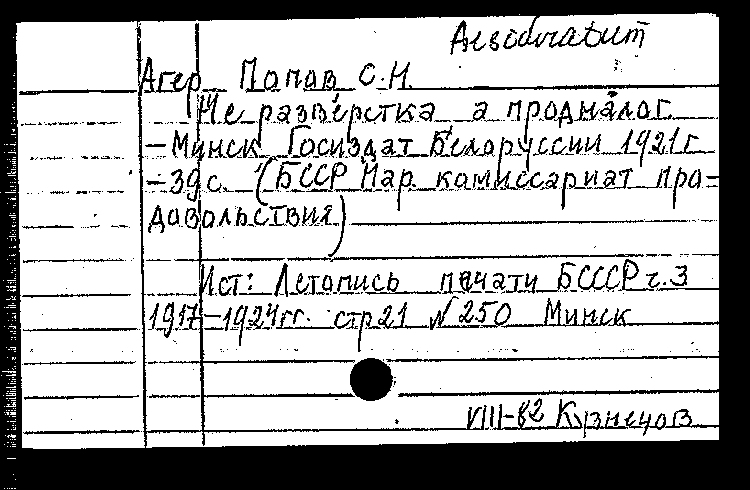 Агер Попов С.Н.
Не развёрстка а продналог.
–Минск Госиздат Белоруссии 1921г
–39с. (БССР Нар. комиссариат про-
довольствия)
Ист: Летопись печати БСССР ч.3
1917–1924гг. стр21 №250 Минск
VIII-82 Кузнецов